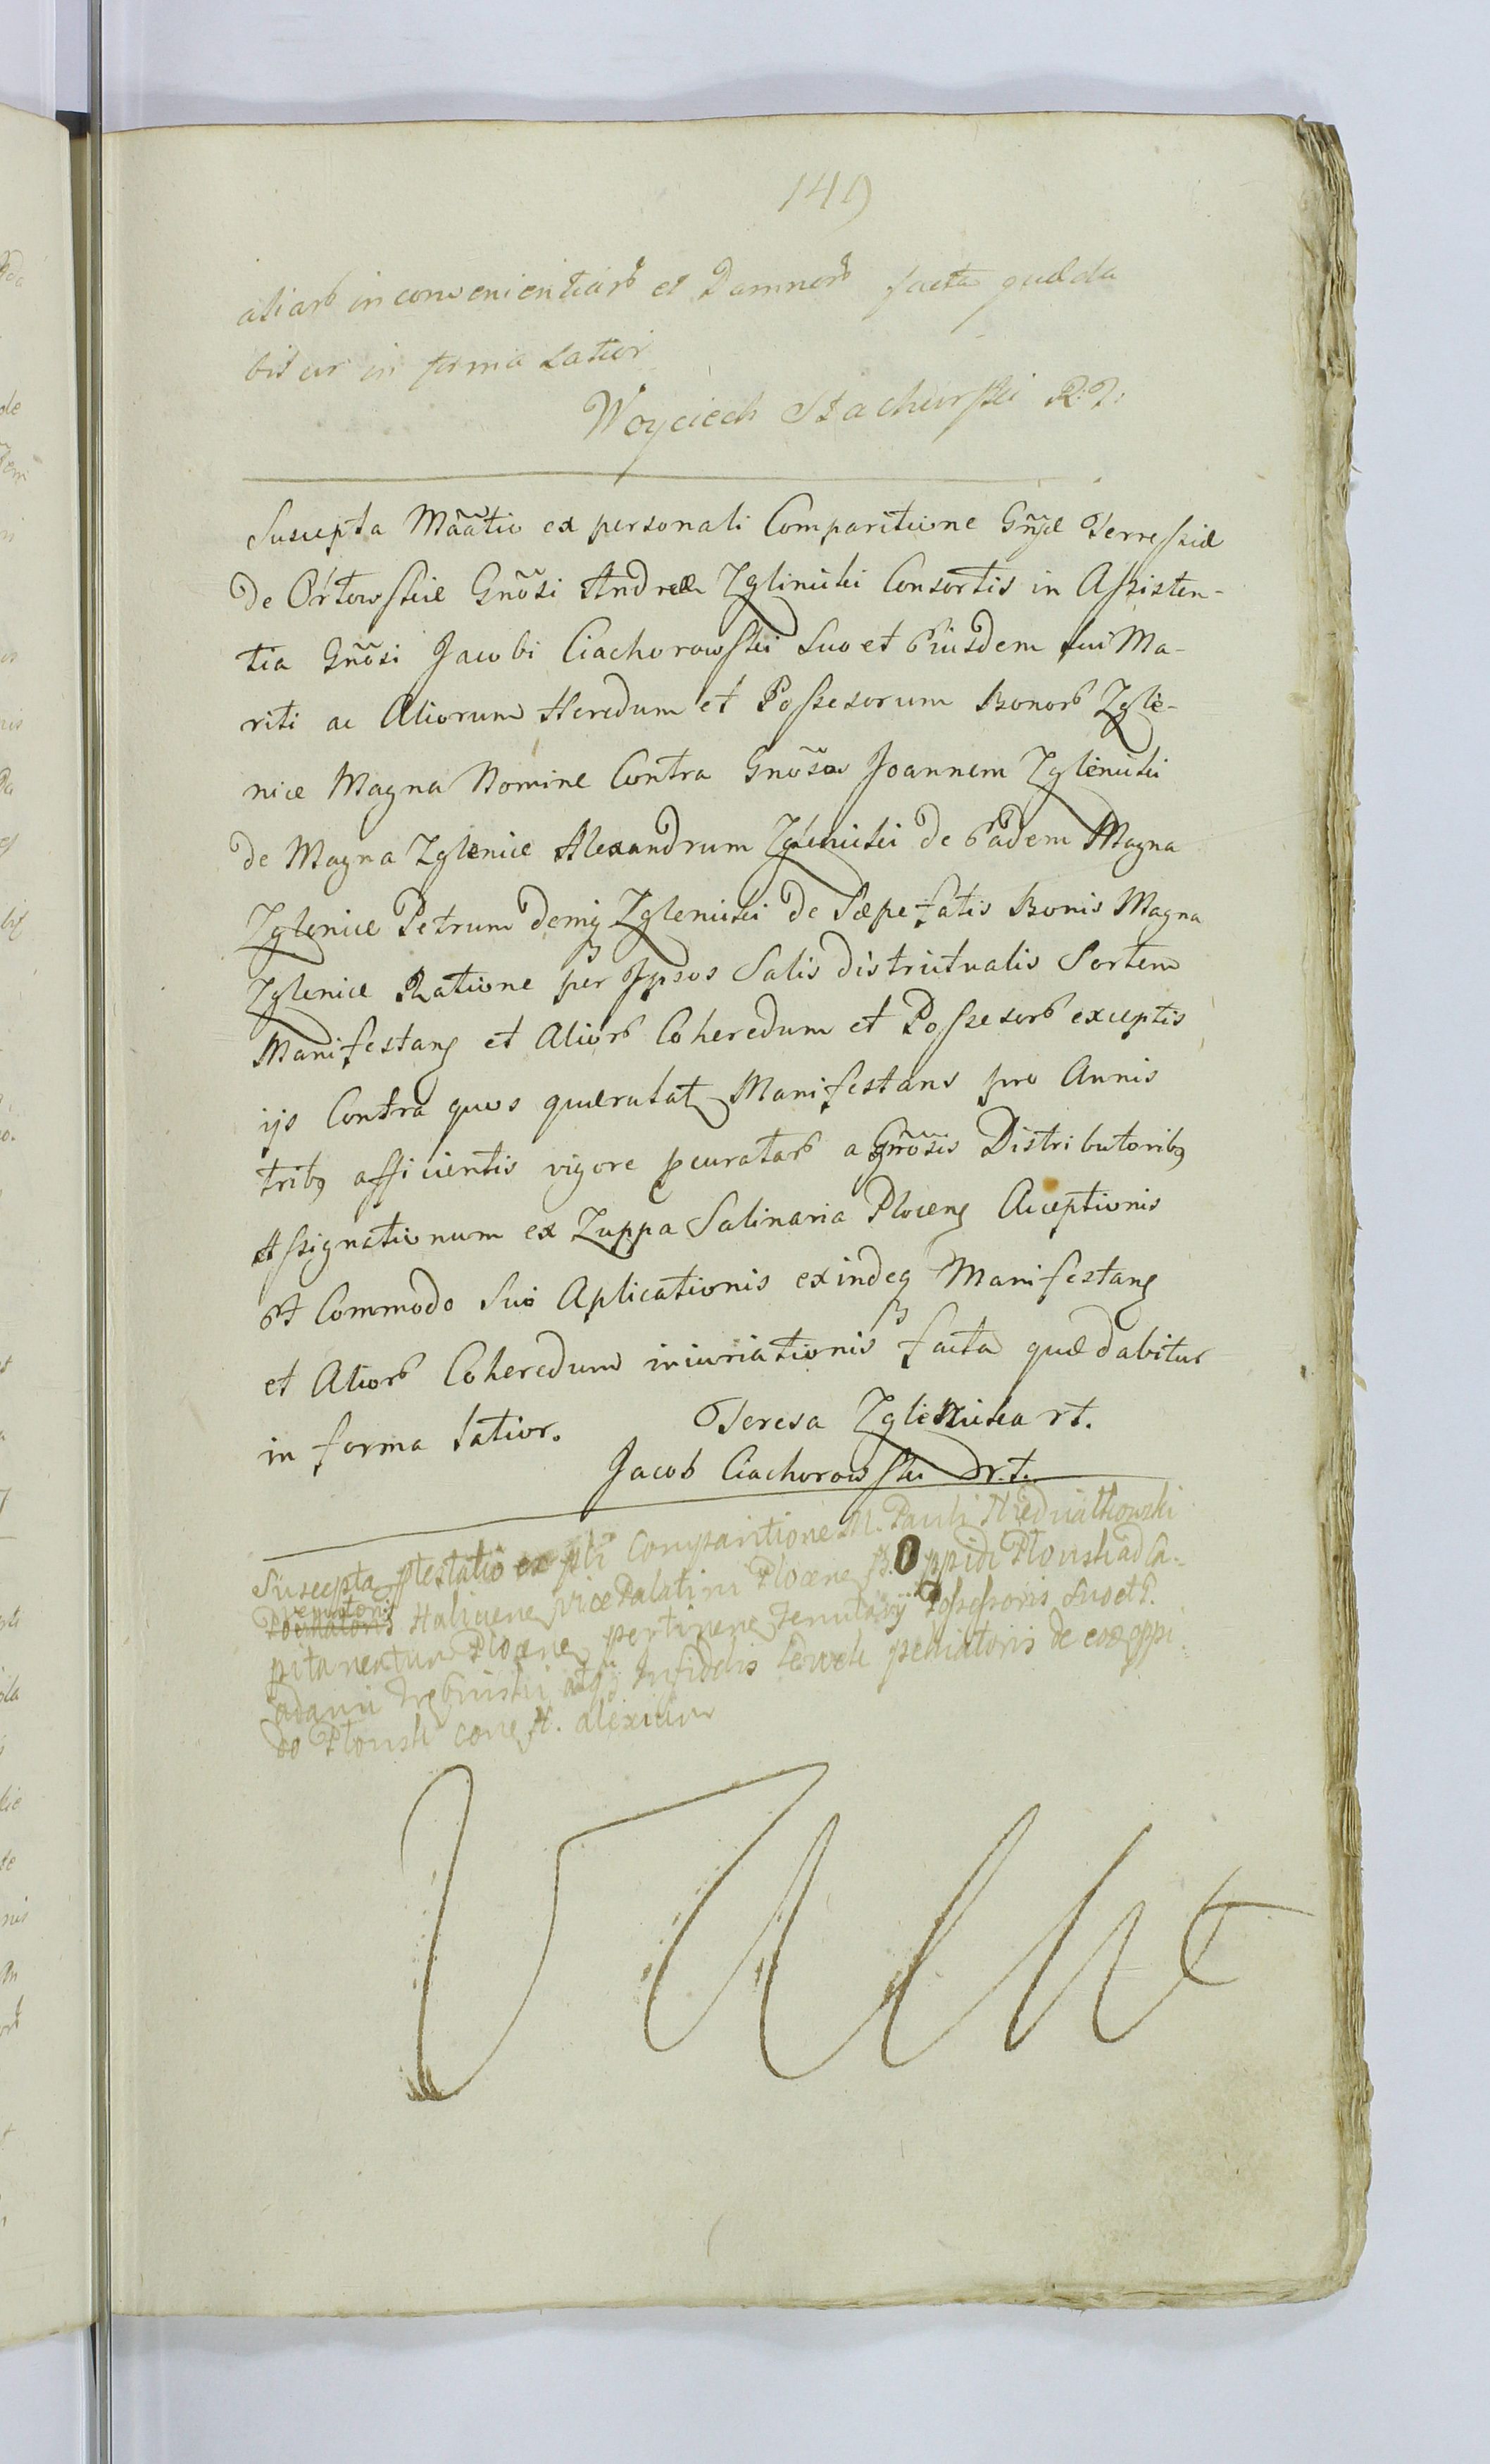 149
aliarb inconvenientiarb et Damnorb facta quæ da
bitur in forma Latior
Woyciech Stachurski R.T:
Suscepta Mããtio ex personali Comparitione Gñsæ Terressiæ
de Ortowskie Gnõsi Andreæ Zglinicki Consortis in Assisten-
tia Gnõsi Jacobi Ciachorowski Suo et Eiusdem sui Ma-
riti ac Aliorum Heredum et Possesorum Bonorb Zgle-
nice Magna Nomine Contra Gnõsos Joannem Zglenicki
de Magna Zglenice Alexandrum Zglenicki de Eadem Magna
Zglenice Petrum deniq Zglenicki de Sæpefatis Bonis Magna
Zglenice Ratione per Ipsos Salis districtualis Sortem
Manifestang et Aliorb Coheredum et Possesorb exceptis
ijs Contra quos quærulat Manifestans pro Annis
tribq afficientis vigore pcuratarb a Gnõsis Distributoribq
Assignationum ex Zuppa Salinaria Ploceng Acceptionis
Et Commodo Suo Aplicationis exindeq Manifestang
et Aliorb Coheredum iniuriationis facta quæ dabitur
in forma latior. Teresa Zglenicka rt.
Jacob Ciachorowski r.t.
Suscepta ptestatio ex pli Comparitione M. Pauli Niedviatkowski
Venatoris
Halicene vice Palatini Plocene Oppidi Plonsk ad Ca-
pitaneatum Plocene pertinene Tenutarij Possessoris Suo et G.
Adami Trebinski atq Infidelis Lewek de eoq oppi
do Plonsk cone N. alexium